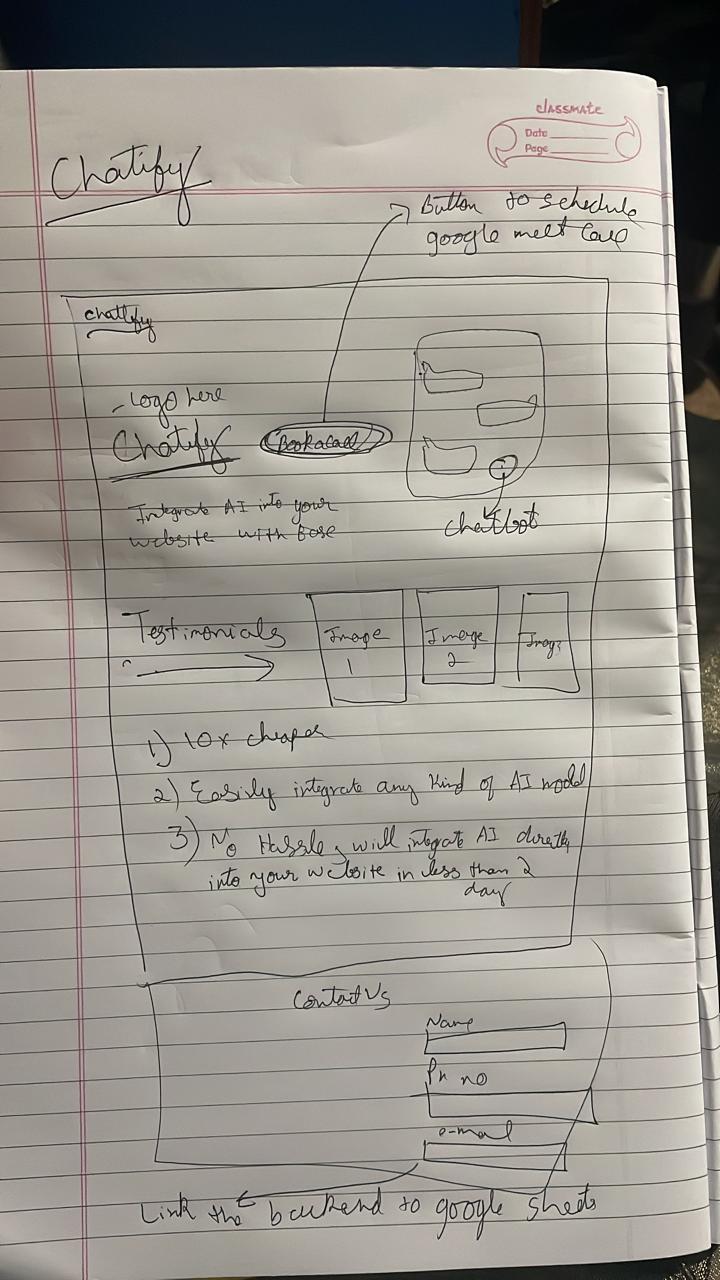 classmate
Date
Page
Chatify
Button to schedule
google meet call
Chatify
Logo here
Chatify
Book a call
Integrate AI into your
website with Ease
Chatbot
Testimonials
Image
1
Image
2
Image
1) 10x cheaper
2) Easily integrate any kind of AI model
3) No Hassle, will integrate AI directly
into your website in less than 2
day
Contact Us
Name
Ph no
e-mail
Link the backend to google sheets